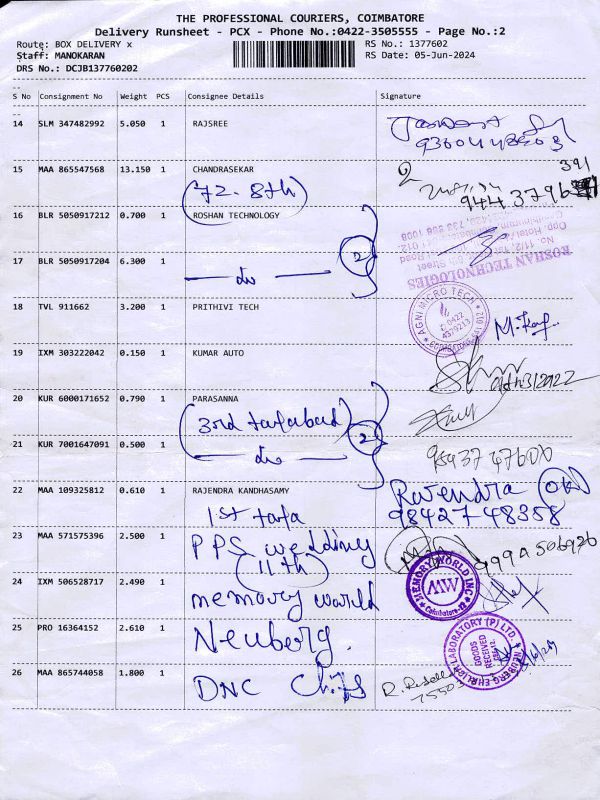 THE PROFESSIONAL COURIERS, COIMBATORE
Delivery Runsheet - PCX - Phone No.:0422-3505555 - Page No.:2
Route: BOX DELIVERY x RS No.: 1377602
Staff: MANOKARAN RS Date: 05-Jun-2024
DRS No.: DCJB137760202
S No Consignment No Weight PCS Consignee Details Signature
14 SLM 347482992 5.050 1 RAJSREE
15 MAA 865547568 13.150 1 CHANDRASEKAR
(72. 8th)
16 BLR 5050917212 0.700 1 ROSHAN TECHNOLOGY
2
ROSHAN TECHNOLOGIES
17 BLR 5050917204 6.300 1
— do —
18 TVL 911662 3.200 1 PRITHIVI TECH
AGNI MICRO TECH
19 IXM 303222042 0.150 1 KUMAR AUTO
20 KUR 6000171652 0.790 1 PARASANNA
2
21 KUR 7001647091 0.500 1
— do —
22 MAA 109325812 0.610 1 RAJENDRA KANDHASAMY
Ravendra OK
98427 48358
1st tata
23 MAA 571575396 2.500 1 PPS wedding
(11th)
24 IXM 506528717 2.490 1 memory world
MEMORY WORLD INC
MW
Coimbatore-12
25 PRO 16364152 2.610 1 Neuberg.
NEUBERG EHRLICH LABORATORY (P) LTD.
GOODS RECEIVED
26 MAA 865744058 1.800 1 DNC Chits